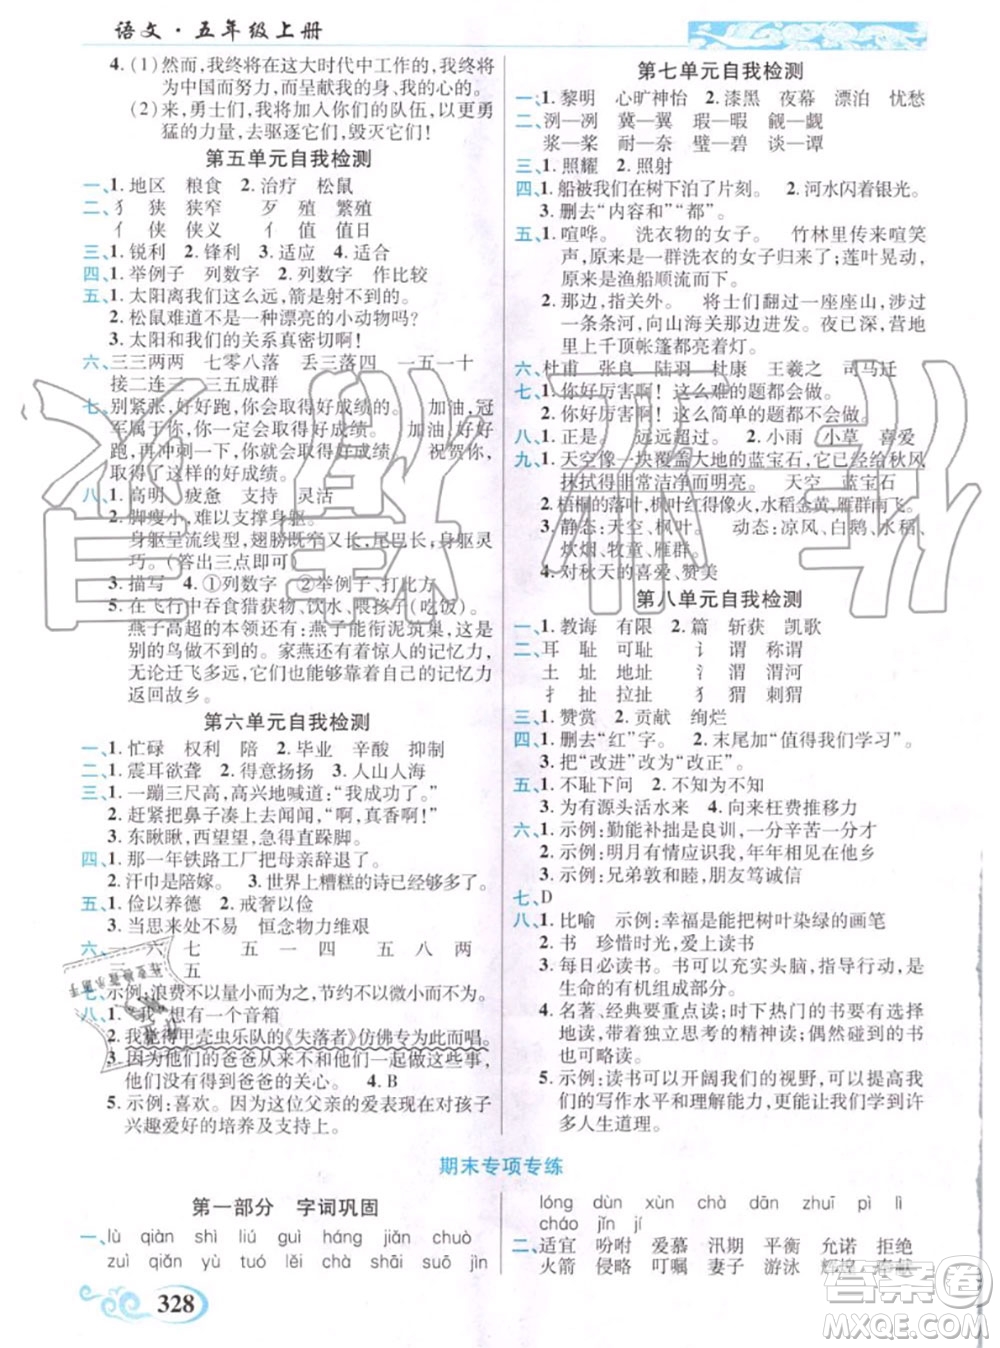 语文·五年级上册
4.(1)然而,我终将在这大时代中工作的,我终将
为中国而努力,而呈献我的身、我的心的。
(2)来,勇士们,我将加入你们的队伍,以更勇
猛的力量,去驱逐它们,毁灭它们!
第五单元自我检测
一、1.地区 粮食 2.治疗 松鼠
二、犭 狭 狭窄 歹 殖 繁殖
亻 侠 侠义 亻 值 值日
三、1.锐利 2.锋利 3.适应 4.适合
四、1.举例子 列数字 2.列数字 作比较
五、1.太阳离我们这么远,箭是射不到的。
2.松鼠难道不是一种漂亮的小动物吗?
3.太阳和我们的关系真密切!
六、三三两两 七零八落 丢三落四 一五一十
接二连三 三五成群
七、别紧张,好好跑,你会取得好成绩的。 加油,冠
军属于你,你会取得好成绩。 加油,好好
跑,再冲刺一下,你会取得好成绩。 祝贺你,
取得了这样的好成绩。
八、1.高明 疲惫 支持 灵活
2.脚瘦小,难以支撑身躯。
身躯呈流线型,翅膀既窄又长,尾巴长,动作灵
巧。(答出三点即可)
3.描写 4.①列数字 ②举例子 ③打比方
5.在飞行中吞食猎获物、饮水、喂孩子(吃饭)。
燕子高超的本领还有:燕子能衔泥筑巢,一次能
哺育多只小燕子。 家燕还有着惊人的记忆力,
无论迁飞多远,它们都能靠着自己的记忆力
返回故乡。
第六单元自我检测
一、1.忙碌 权利 陪 2.毕业 辛酸 抑制
二、1.震耳欲聋 2.得意扬扬 3.人山人海
三、1.一蹦三尺高,高兴地喊道:“我成功了。”
2.赶紧把鼻子凑上去,闻闻有没有香味。
3.东瞅瞅,西望望,急得直跺脚。
四、1.那一年铁路工厂把母亲辞退了。
2.汗巾是陪嫁。 3.世界上糟糕的诗已经够多了。
五、1.俭以养德 2.戒奢以俭
3.当思来处不易 恒念物力维艰
六、一 六 七 五 一 四 五 八 两
三 五
七、示例:浪费不以量小而为之,节约不以微小而不为。
八、1.“我”想有一个音箱
2.我觉得甲壳虫乐队的《失落者》仿佛专为此而唱。
3.因为他们的爸爸为他们做了这些事,
他们没有得到爸爸的关心。 4.B
5.示例:喜欢。因为这位父亲的爱表现在对孩子
兴趣爱好的培养及支持上。
第七单元自我检测
一、1.黎明 心旷神怡 2.漆黑 夜幕 漂泊 忧愁
二、洌—冽 冀—翼 瑕—暇 觎—觑
浆—桨 耐—奈 恳—垦 谈—谭
三、1.照耀 2.照射
四、1.船被我们在树下泊了片刻。 2.河水闪着银光。
3.删去“内容和”“都”。
五、1.喧哗。 洗衣物的女子。 竹林里传来喧笑
声,原来是一群洗衣的女子归来;莲叶晃动,
原来是渔船顺流而下。
2.那边,指关外。 将士们一过一座座山,一条
条河,向山海关那边进发。夜深了,营地
千帐军帐篷都亮着灯。
六、杜甫 张良 陆羽 杜康 王羲之 司马迁
七、1.你好厉害啊!这么难的题都会做。
2.你好厉害啊!这么简单的题都不会做。
八、1.正是。 远远超过。 2.小雨 小草 喜爱
九、1.天空像一块覆盖大地的蓝宝石,已经被秋风
抹拭得非常洁净而明亮。 天空 蓝宝石
2.梧桐的落叶,枫叶红得像火,水稻金黄,雁群南飞。
3.静态:天空、枫叶。 动态:凉风、白鹅、水稻、
炊烟、牧童、雁群。
4.对秋天的喜爱、赞美
第八单元自我检测
一、1.教诲 有限 2.篇 斩获 凯歌
二、耳 耻 可耻 讠 谓 称谓
土 址 地址 氵 渭 渭河
扌 扯 拉扯 犭 猬 刺猬
三、1.赞赏 2.贡献 3.绚烂
四、1.删去“红”字。 2.末尾加“值得我们学习”。
3.把“改进”改为“改正”。
五、1.不耻下问 2.不知为不知
3.为有源头活水来 4.向来枉费推移力
六、1.示例:勤能补拙是良训,一分辛苦一分才
2.示例:明月有情应识我,年年相见在他乡
3.示例:兄弟敦和睦,朋友笃诚信
七、D
八、1.比喻 示例:幸福是能把树叶染绿的画笔
2.书 珍惜时光,爱上读书。
3.每日必读书。书可以充实头脑,成为我
生命的有机组成部分。
4.名著、经典要重点读;时下热门的书要有选择
地读,带着独立思考的精神读;偶然碰到的书
可略读。
5.示例:读书可以开阔我们的视野,可以提高我
们的写作水平和理解能力,更可以让我们学到许
多人生道理。
期末专项专练
第一部分 字词巩固
一、lù qiàn shì liú guì háng jiān chuò
zuì qiǎn yù tuó lěi chà shāi suō jìn
lóng dùn xùn chà dān zhuī pì lì
cháo jǐn jí
二、适宜 吩咐 爱慕 汛期 平衡 允诺 拒绝
火箭 侵略 叮嘱 妻子 游泳 辉煌 奉献
328
答案圈
MXQE.COM